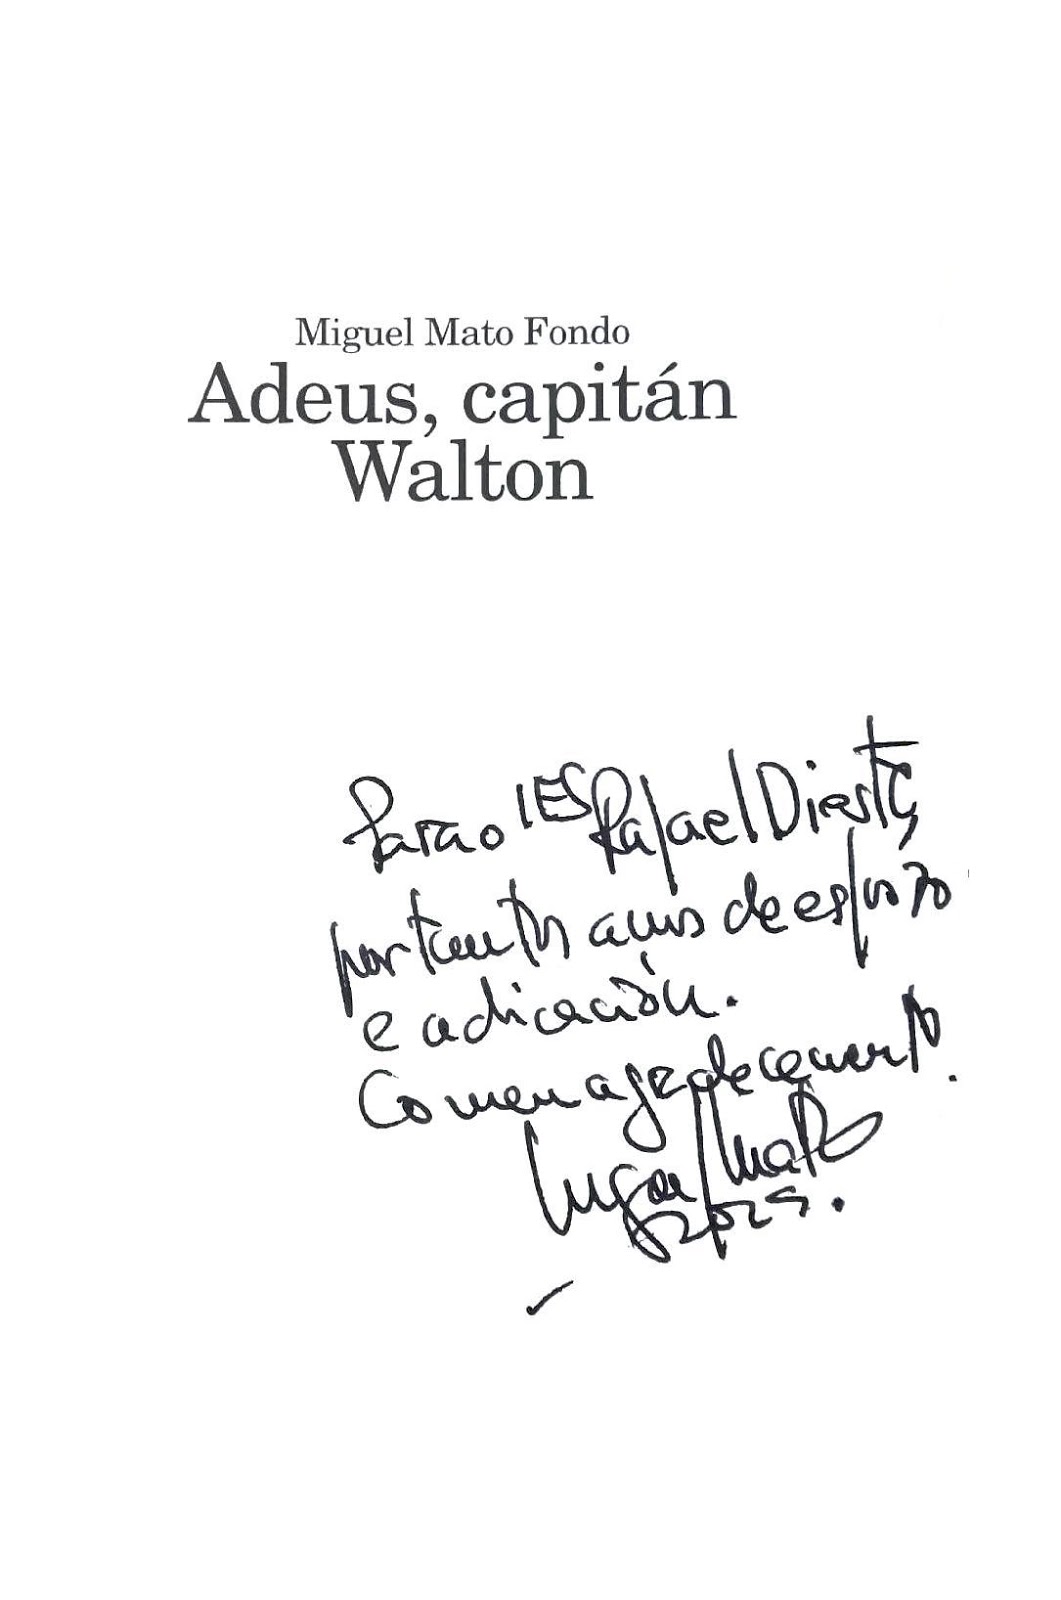 Miguel Mato Fondo
Adeus, capitán
Walton
Para o IES Rafael Dieste,
por tantos anos de esforzo
e adicación.
Co menaxe de
Miguel Mato
2025.